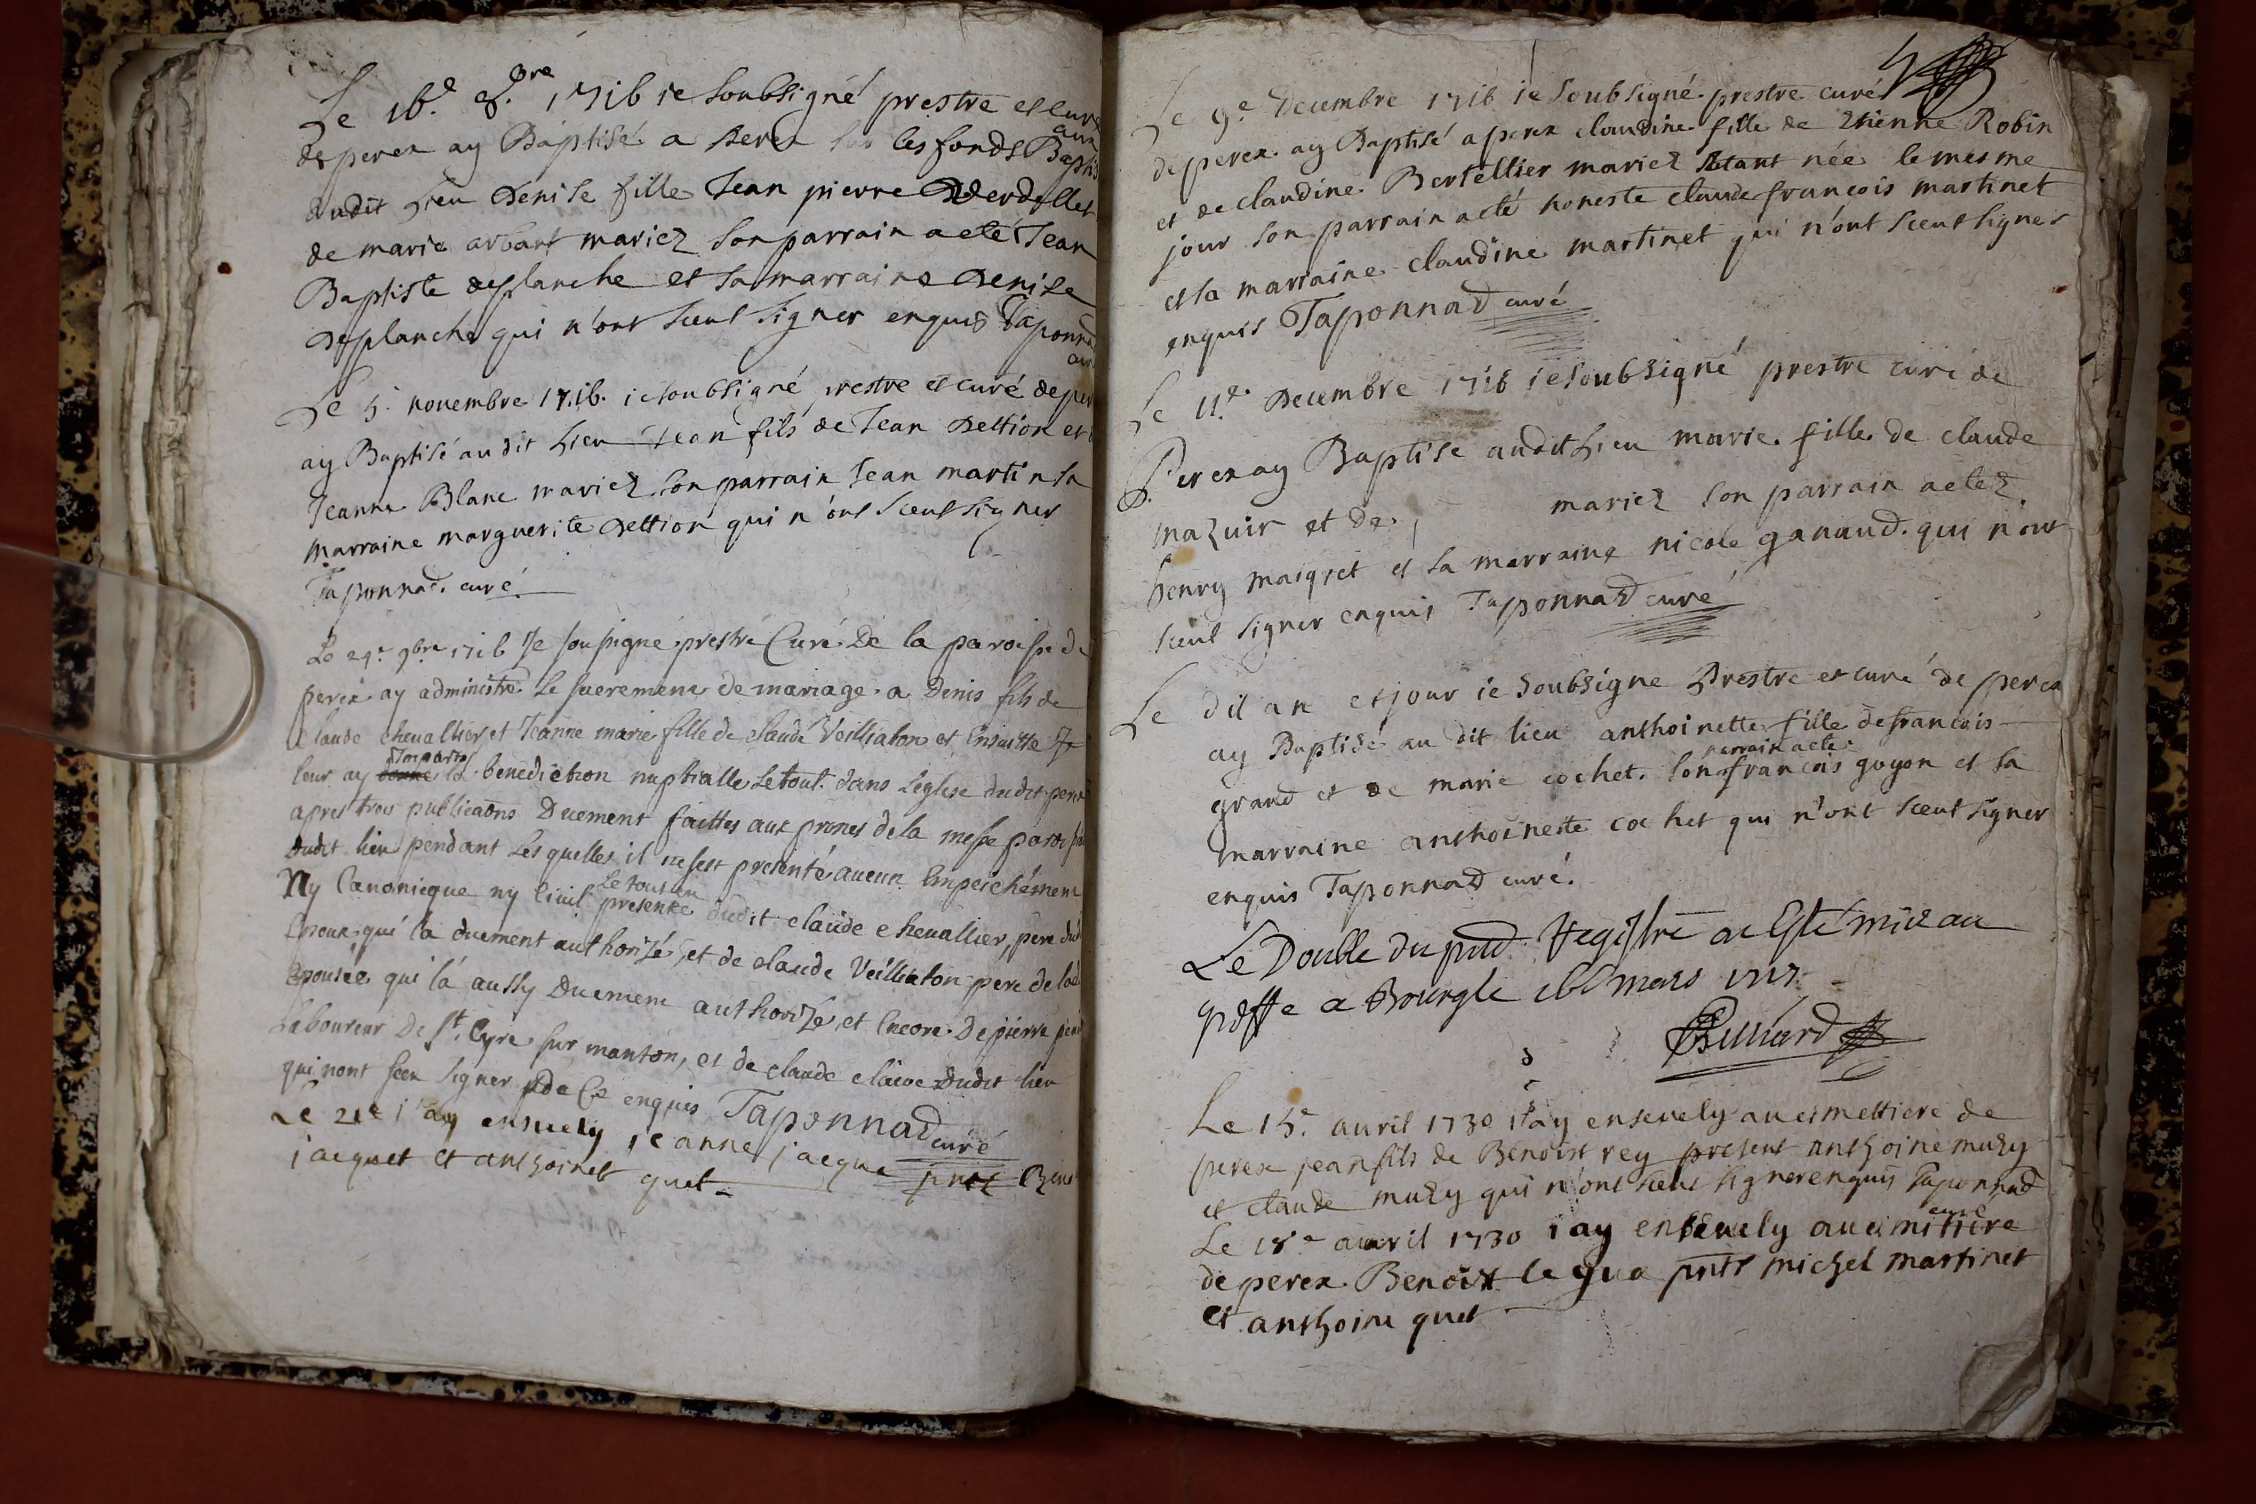 Le 16.e 8.bre 1716 ie soubsigné prestre et curé
de perex ay Baptisé a perex sur les fonds Baptis
audit Lieu Denise fille Jean pierre Verdellet
de marie arbant mariez son parrain a eté Jean
Baptiste desplanche et sa marraine Denise
Desplanche qui n'ont sceut signer enquis Taponnad
curé
Le 5. novembre 1716. ie soubsigné prestre et curé de per
ay Baptisé audit Lieu Jean fils de Jean Dettion et
Jeanne Blanc mariez son parrain Jean martin sa
marraine marguerite Dettion qui n'ont sceut signer
Taponnad. curé.
Le 9bre 1716 Je sousigné prestre Curé De la paroisse de
perex ay administré le sacrement de mariage a Denis fils de
Claude chevallier et Jeanne marie fille de claude Veilliaton et Ensuitte Je
leur ay donné Imparti la bénédiction nuptialle Le tout dans L'eglise dudit perex
apres trois publicaõns Duement faittes aux prones de la messe paroi
dudit lieu pendant Lesquelles il ne sest presenté aucun Empeichement
Ny Canonicque ny Civil Le tout en presence dudit claude chevallier, pere dudi
Epoux qui l'a duement authorizé, et de claude Veilliaton pere de lad
Epousée qui l'a aussy Duement authorizé, et Encore De pierre
Laboureur De St. Cyre sur manton, et de claude claive Dudit lieu
qui n'ont sceu signer de Ce enquis Taponnad curé
Le 21e i'ay ensevely jeanne jacque
jacquet et anthoinet quet
Le 9.e Decembre 1716 ie soubsigné prestre curé
de perex ay Baptisé a perex claudine fille de Etienne Robin
et de claudine Bertellier mariez Etant née le mesme
jour son parrain a eté honeste claude francois martinet
et sa marraine claudine martinet qui n'ont sceut signer
enquis Taponnad curé
Le 11.e Decembre 1716 ie soubsigné prestre curé de
Perex ay Baptise audit Lieu marie fille de claude
mazuir et de mariez son parrain a eté
henry maigret et sa marraine nicole ganaud. qui n'ont
sceut signer enquis Taponnad curé
Le dit an et jour ie soubsigne Prestre et curé de perex
ay Baptisé au dit lieu anthoinette fille de francois
grand et de marie cochet. son parrain a eté francois goyon et sa
marraine anthoinette cochet qui n'ont sceut signer
enquis Taponnad curé.
Le Double du pnt Registre a Esté mis au
greffe a Bourg le 16 mars 1717
Billiard
Le 15.e avril 1730 i'ay ensevely au cimettiere de
perex jean fils de Benoist rey present anthoine muzy
et claude muzy qui n'ont sceut signer enquis Taponnad
curé
Le 18.e avril 1730 i ay ensevely au cimitiere
de perex Benoist legua pnts michel martinet
et anthoine quet